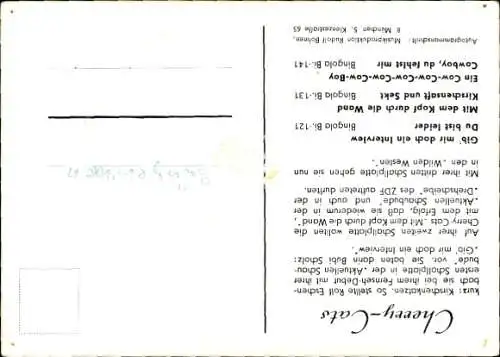 Cherry-Cats
kurz: Kirschenkatzen. So stellte Rolf Eschen-
bach sie bei ihrem Fernseh-Debut mit ihrer
ersten Schallplatte in der „Aktuellen Schau-
bude" vor. Sie baten darin Bubi Scholz:
„Gib' mir doch ein Interview".
Auf ihrer zweiten Schallplatte wollten die
Cherry Cats „Mit dem Kopf durch die Wand",
mit dem Erfolg, daß sie wiederum in der
„Aktuellen Schaubude" und auch in der
„Drehscheibe" des ZDF auftreten durften.
Mit ihrer dritten Schallplatte gehen sie nun
in den „Wilden Westen".
Gib' mir doch ein Interview
Du bist leider Bingola Bi.-121
Mit dem Kopf durch die Wand
Kirschensaft und Sekt Bingola Bi.-131
Ein Cow-Cow-Cow-Cow-Cow-Boy
Cowboy, du fehlst mir Bingola Bi.-141
Autogrammanschrift: Musikproduktion Rudolf Bohner,
8 München 5, Klenzestraße 65